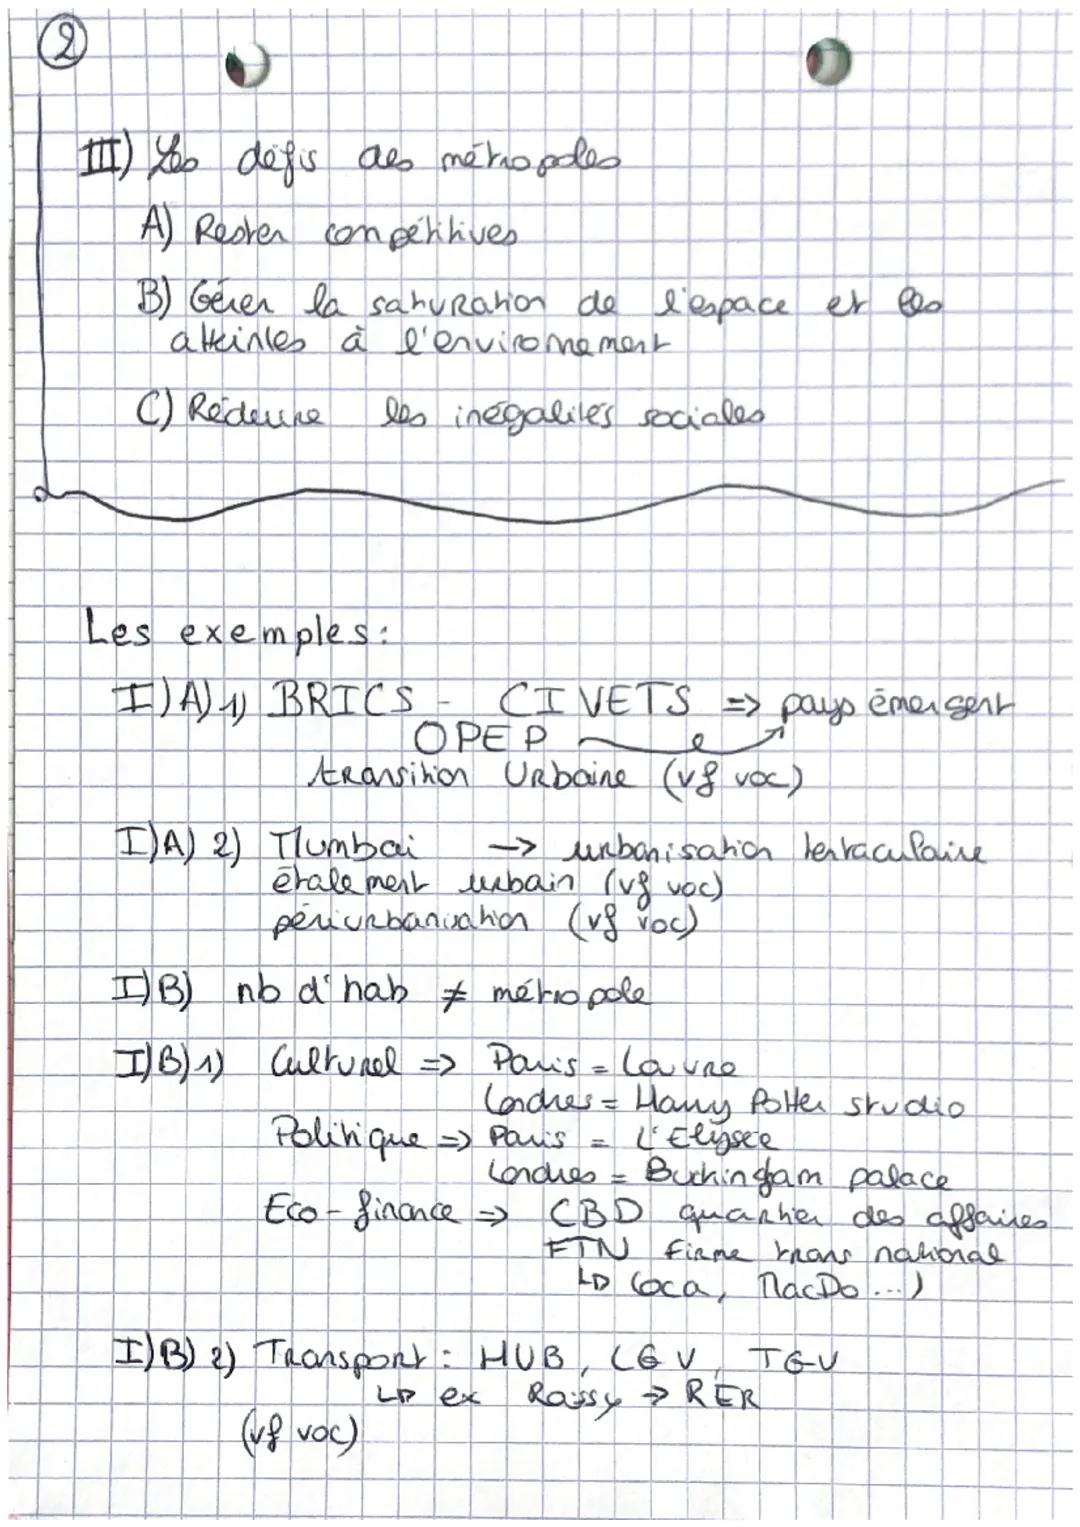 2
III) Les défis des métropoles
A) Rester compétitives
B) Gérer la saturation de l'espace et les
atteintes à l'environnement
C) Réduire les inégalités sociales
Les exemples:
I)A)1) BRICS - CIVETS => pays émergent
OPEP
transition Urbaine (vf voc)
I)A) 2) Mumbai -> urbanisation tentaculaire
étalement urbain (vf voc)
périurbanisation (vf voc)
I)B) nb d'hab ≠ métropole
I)B)1) Culturel => Paris = Louvre
Londres = Harry Potter studio
Politique => Paris = L'Elysée
Londres = Buckingam palace
Eco-finance => CBD quartier des affaires
FTN firme trans national
↳ Coca, MacDo ...)
I)B) 2) Transport : HUB, LGV, TGV
↳ ex Roissy → RER
(vf voc)